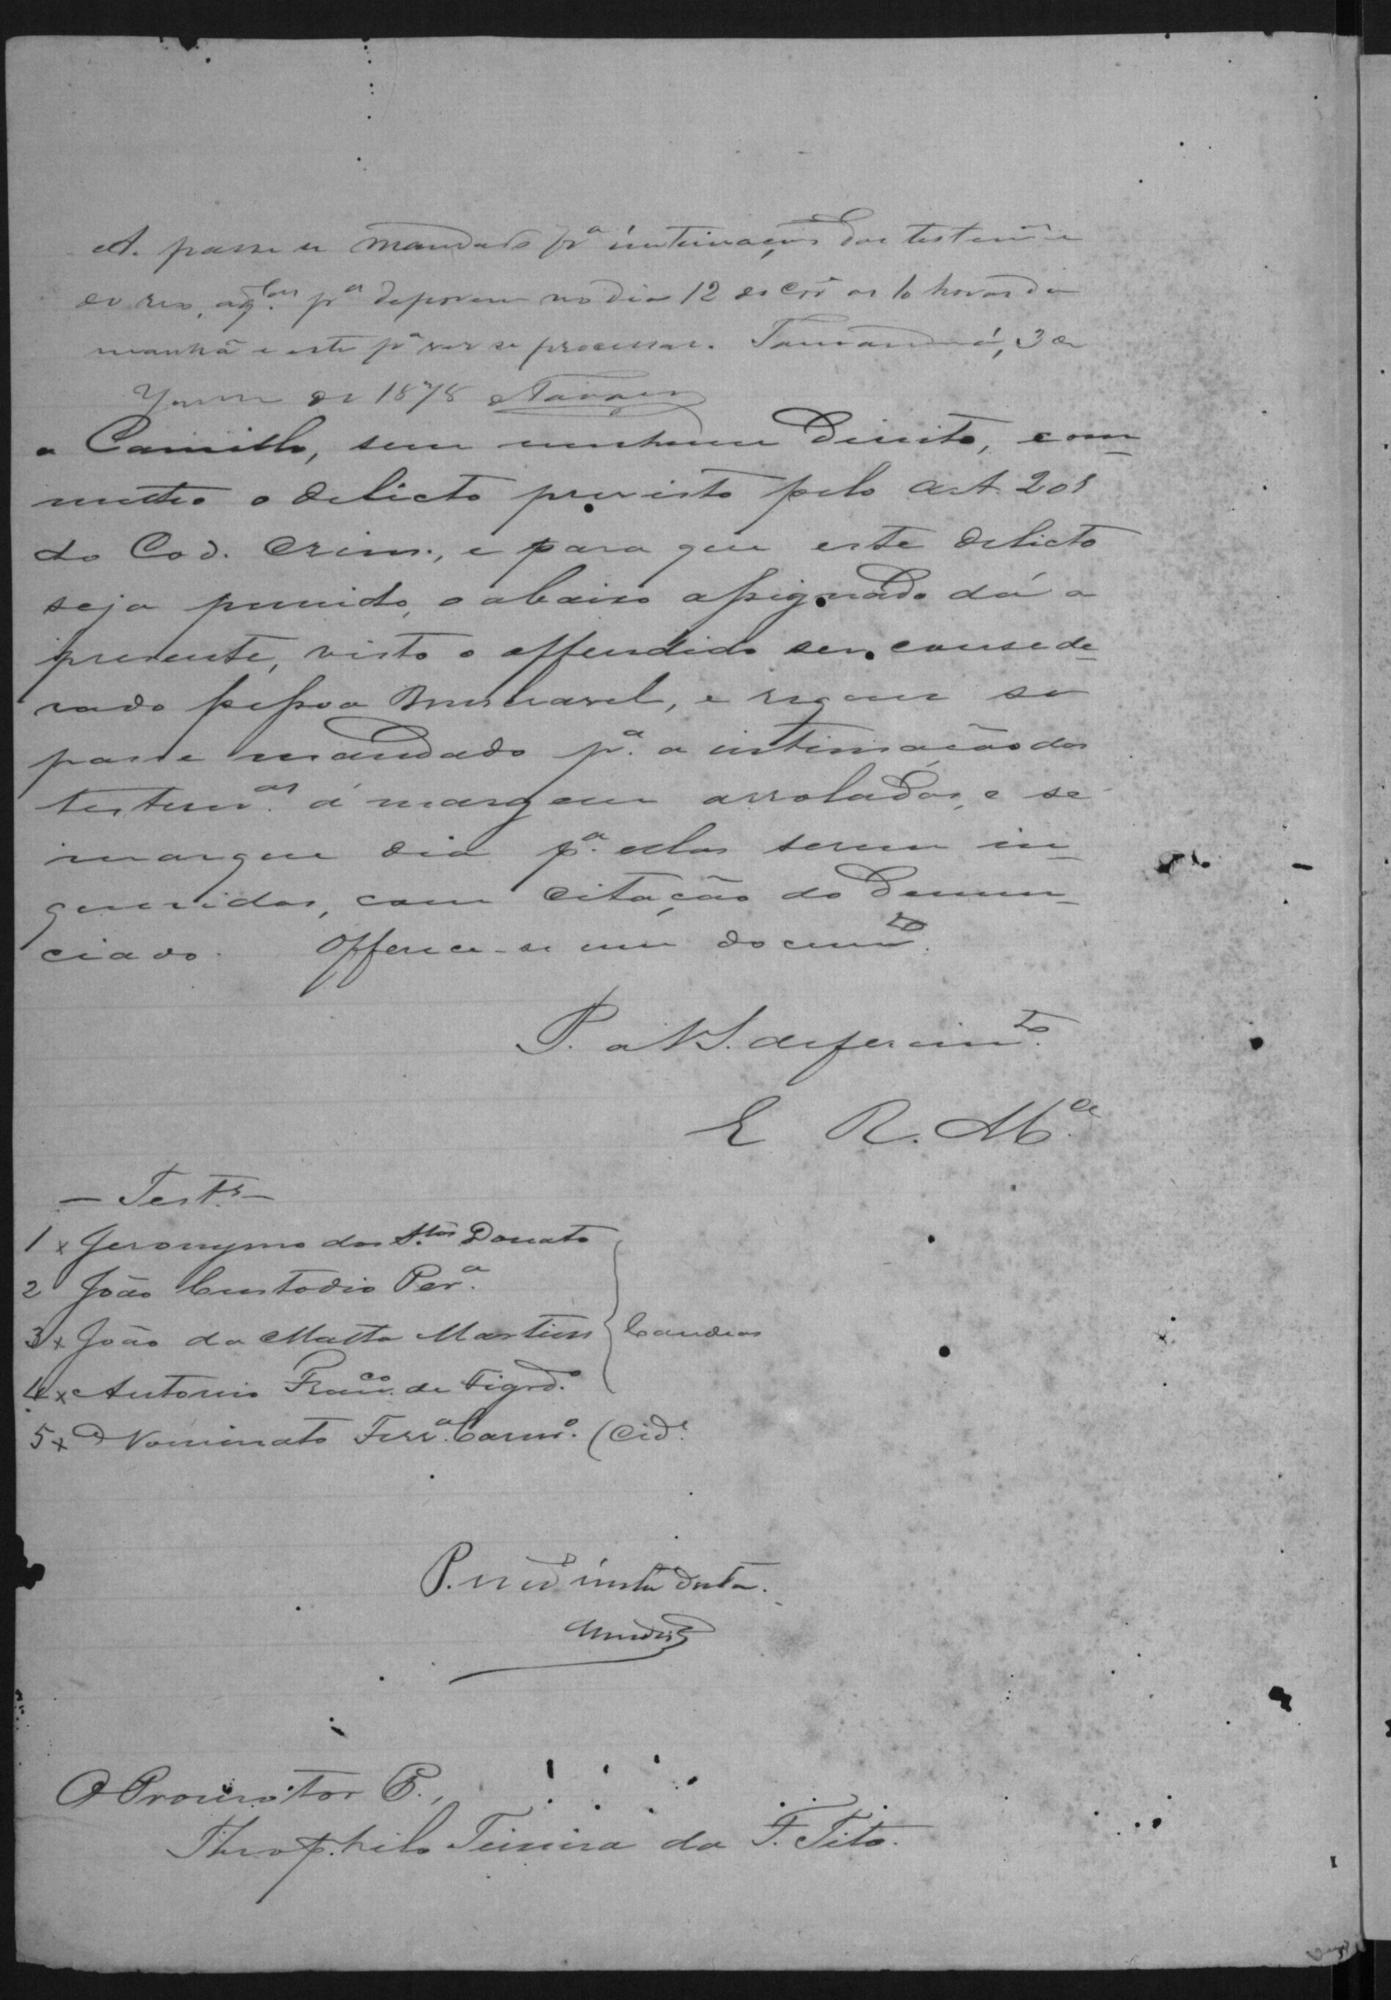 A. passe-se mandado pª intimação das testemªs
do reo, aqˡᵃˢ pª deporem no dia 12 do corr as 10 horas da
manhã e este pª ver se processar. Tamanduá, 3 de
de 1878 Navarro
a Camillo, sem nenhum direito, com-
metteo o delicto previsto pelo art 201
do Cod. Crim., e para que este delicto
seja punido, o abaixo assignado dá a
presente, visto o offendido ser conside-
rado pessoa miseravel, e requer se
passe mandado pª. a intimação das
testemᵃˢ á margem arroladas, e se
marque dia pª. ellas serem in-
queridas, com citação do Denun-
ciado. Offerece-se um documᵗᵒ.
P. a V.S. deferimᵗᵒ.
E R. Mᶜᵉ
— Testˢ —
1 x Jeronymo dos Sᵗᵒˢ Donato
2 João Custodio Perª.
3 x João da Matta Martins } Candeas
4 x Antonio Francᶜᵒ de Figdº.
5 x Nominato Ferrª. Carnº. (Cidᵉ
data.
O Promotor P.,
Theophilo Teixeira da F. Tito.